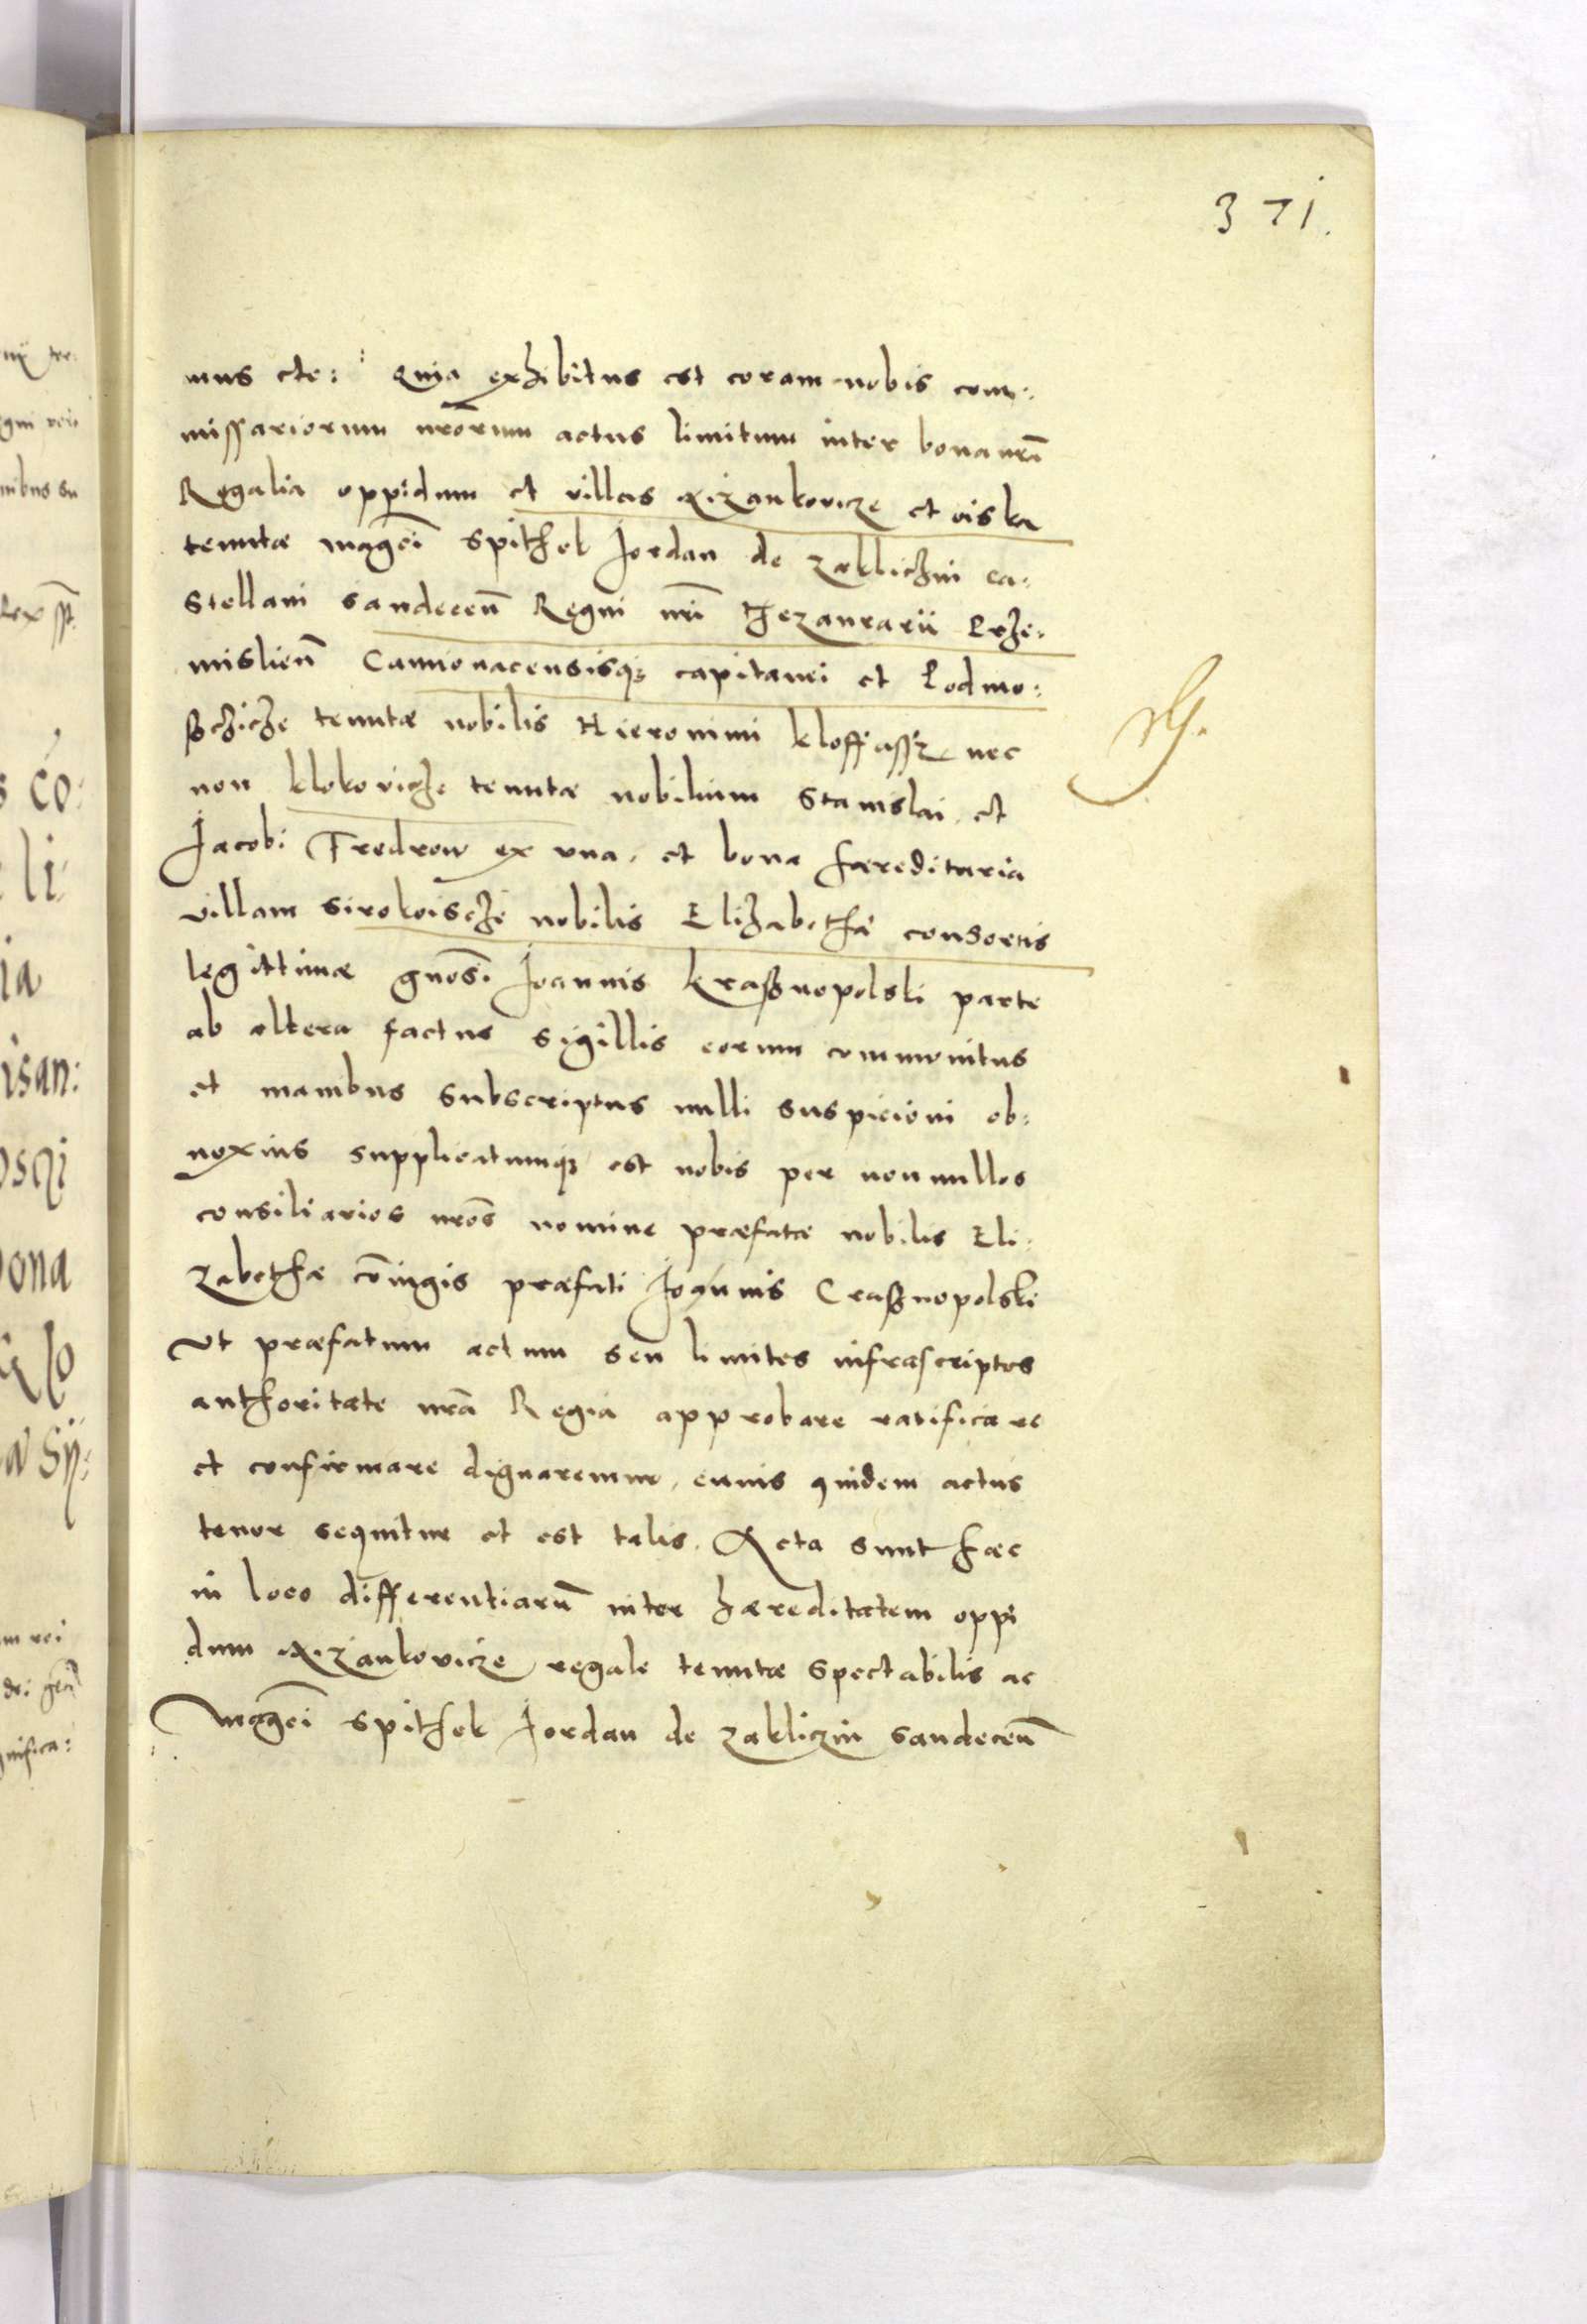 371.
mus etc: Quia exhibitus est coram nobis com:
missariorum nrōrum actus limitum inter bona nrā
Regalia oppidum et villas Rizankovicze et
tenutæ magcī Spithek Jordan de Zaklichin ca:
stellani sandecen̄ Regni nrī thezaurarii Prze:
mislien̄ Camionacensisq; capitanei et Podmo:
sczicze tenutæ nobilis Hieronimi kloffassz nec
non klokovicze tenutæ nobilium Stanislai et
Jacobi Fredrow ex una, et bona hæreditaria
villam Sirokoiscze nobilis Elizabethæ consortis
legittimæ gnōsi Joannis kraßnopolski parte
ab altera factus sigillis eorum communitus
et manibus subscriptus nulli suspicioni ob:
noxius supplicatumq; est nobis per nonnullos
consiliarios nrōs nomine præfatæ nobilis Eli:
zabethæ cōiugis præfati Joannis Craßnopolski
Ut præfatum actum seu limites infrascriptos
authoritate nrā Regia approbare ratificare
et confirmare dignaremur, cuius quidem actus
tenor sequitur et est talis. Acta sunt hæc
in loco differentiarū inter hæreditatem oppi
dum Rizankovicze regale tenutæ spectabilis ac
magcī Spithek Jordan de Zakliczin sandecen̄